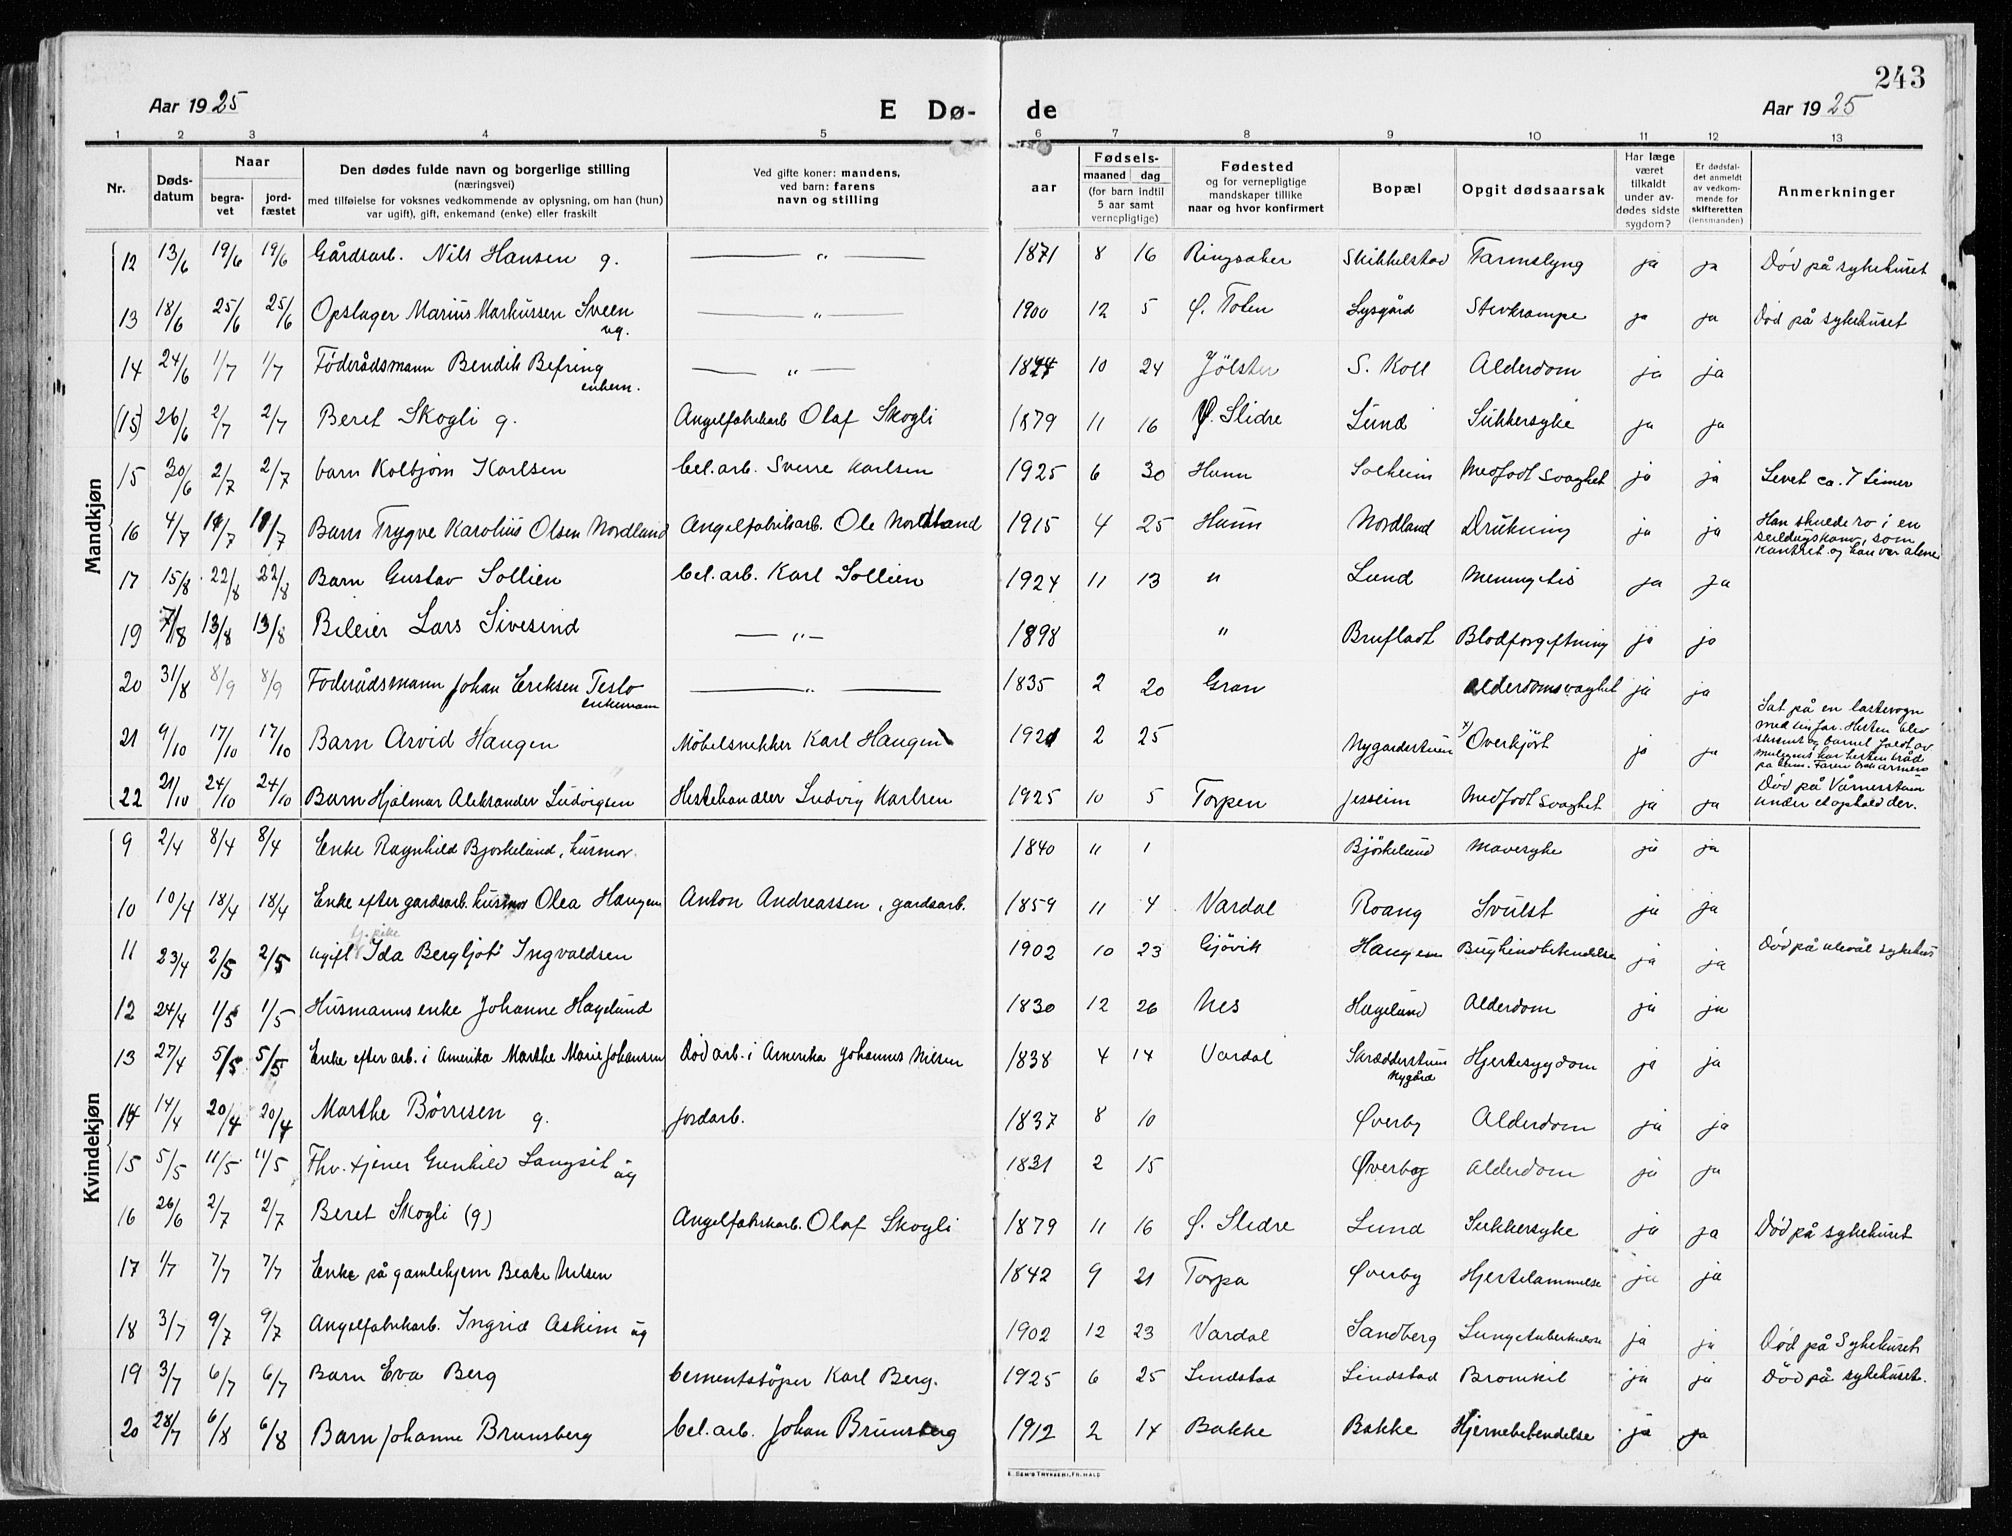 243
Aar 1925 E Dø- de Aar 1925
1 2 3 4 5 6 7 8 9 10 11 12 13
Nr.
Døds-
datum
Naar
begra-
vet
jord-
fæstet
Den dødes fulde navn og borgerlige stilling
(næringsvei)
med tilføielse for voksnes vedkommende av oplysning, om han (hun)
var ugift), gift, enkemand (enke) eller fraskilt
Ved gifte koner: mandens,
ved barn: farens
navn og stilling
aar
Fødsels-
maaned dag
(for barn indtil
5 aar samt
vernepligtige)
Fødested
og for vernepligtige
mandskaper tillike
naar og hvor konfirmert
Bopæl
Opgit dødsaarsak
Har læge
været
tilkaldt
under av-
dødes sidste
sygdom?
Er dødsfal-
det anmeldt
av vedkom-
mende for
skifteretten
(lensmanden)
Anmerkninger
Mandkjøn
12 13/6 19/6 19/6 Gårdsarb. Nils Hansen g. — " — 1871 8 16 Ringsaker Skikkelstad Tarmslyng ja ja Död på sykehuset
13 18/6 25/6 25/6 Opslager Marius Markussen Sveen ug. — " — 1900 12 5 Ø. Toten Lysgård Stivkrampe ja ja Död på sykehuset
14 24/6 1/7 1/7 Föderådsmann Bendik Befring enkem. — " — 10 24 Jölster S. Koll Alderdom ja ja
(15) 26/6 2/7 2/7 Beret Skogli g. Angelfabrikarb Olaf Skogli 1879 11 16 Ø. Slidre Lund Sukkersyke ja ja
15 30/6 2/7 2/7 barn Kolbjørn Karlsen bel.arb. Sverre Karlsen 1925 6 30 Hunn Solheim Medfødt svaghet ja ja Levet ca. 7 timer
16 4/7 Barn Trygve Karolius Olsen Nordland Angelfabrikarb. Ole Nordland 1915 4 25 Hunn Nordland Drukning ja ja Han skulde ro i en
seildugskano, som
kantret og han var alene
17 15/8 22/8 22/8 Barn Gustav Sollien bel. arb. Karl Sollien 1924 11 13 " Lund Meningitis ja ja
19 7/8 13/8 13/8 Bileier Lars Sivesind — " — 1898 " Bruflaat Blodforgiftning ja ja
20 31/8 8/9 8/9 Föderådsmann Johan Eriksen Teslo enkemann — " — 1835 2 20 Gran Alderdomsvaghet ja ja
21 9/10 17/10 17/10 Barn Arvid Haugen Möbelsnekker Karl Haugen 1921 2 25 Nygardstuen x) Overkjört ja ja Sat på en lastevogn
med sin far. Hesten blev
skremt og barnet faldt av
22 21/10 24/10 24/10 Barn Hjalmar Aleksander Ludvigsen Hestehandler Ludvig Karlsen 1925 10 5 Torpen Jesseim Medfödt svaghet ja ja Död på Vårnesstuen
under et ophold der.
Kvindekjøn
9 2/4 8/4 8/4 Enke Ragnhild Bjørkelund, husmor. 1840 11 1 Bjørkelund Mavesyke ja ja
10 10/4 18/4 18/4 Enke efter gardsarb. husmor Olea Haugen Anton Andreassen, gardsarb. 1859 11 4 Vardal Roang Svulst ja ja
11 23/4 2/5 2/5 ugift tj.pike Ida Bergljot Ingvaldsen 1902 10 23 Gjövik Haugen Bughindbetendelse ja ja Död på ulevål sykehus
12 24/4 1/5 1/5 Husmannsenke Johanne Hagelund 1830 12 26 Nes Hagelund Alderdom ja ja
13 27/4 5/5 5/5 Enke efter arb. i Amerika Marthe Marie Johansen Död arb. i Amerika Johannes Nilsen 1838 4 14 Vardal Skrædderstuen Nygård Hjertesygdom ja ja
14 14/4 20/4 20/4 Marthe Börresen g. jordarb. 1837 8 10 Øverby Alderdom ja ja
15 5/5 11/5 11/5 Fhv. tjener Gunhild Langset ug 1831 2 15 Øverby Alderdom ja ja
16 26/6 2/7 2/7 Beret Skogli (g) Angelfabrikarb. Olaf Skogli 1879 11 16 Ø. Slidre Lund Sukkersyke ja ja Död på sykehuset
17 1/7 7/7 7/7 Enke på gamlehjem Beate Nilsen 1842 9 21 Torpa Øverby Hjertelammelse ja ja
18 3/7 9/7 9/7 Angelfabrikarb. Ingrid Askim ug 1902 12 23 Vardal Sandberg Lungetuberkulose ja ja Död på Sykehuset
19 3/7 6/7 6/7 Barn Eva Berg Cementstöper Karl Berg. 1925 6 25 Lindstad Lindstad Bronkit ja ja Död på sykehuset.
20 28/7 6/8 6/8 Barn Johanne Brunsberg bel. arb. Johan Brunsberg 1912 2 14 Bakke Bakke Hjernebetendelse ja ja